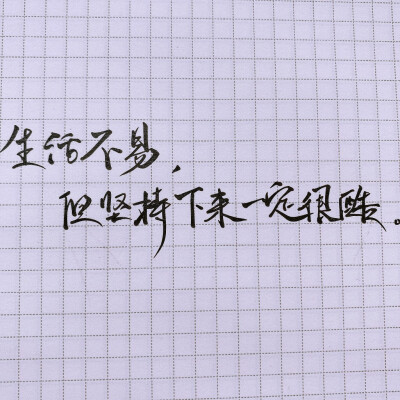 生活不易，
但坚持下来一定很酷。